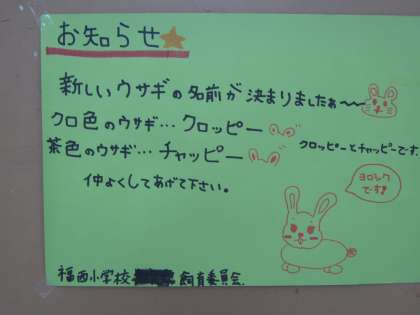 お知らせ
新しいウサギの名前が決まりましたぁ〜〜
クロ色のウサギ…クロッピー
茶色のウサギ…チャッピー
クロッピーとチャッピーです
仲よくしてあげて下さい。
ヨロシクです!!
福西小学校 飼育委員会